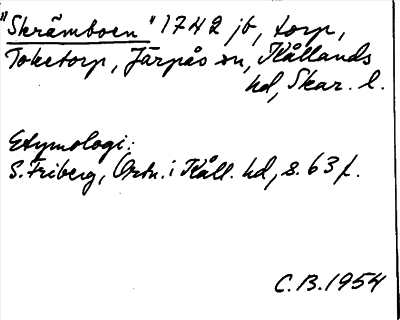 "Skrämboen" 1742 jb, torp,
Toketorp, Järpås sn, Kållands
hd, Skar. l.
Etymologi:
S. Friberg, Ortn. i Kåll. hd, s. 63 f.
C.B. 1954